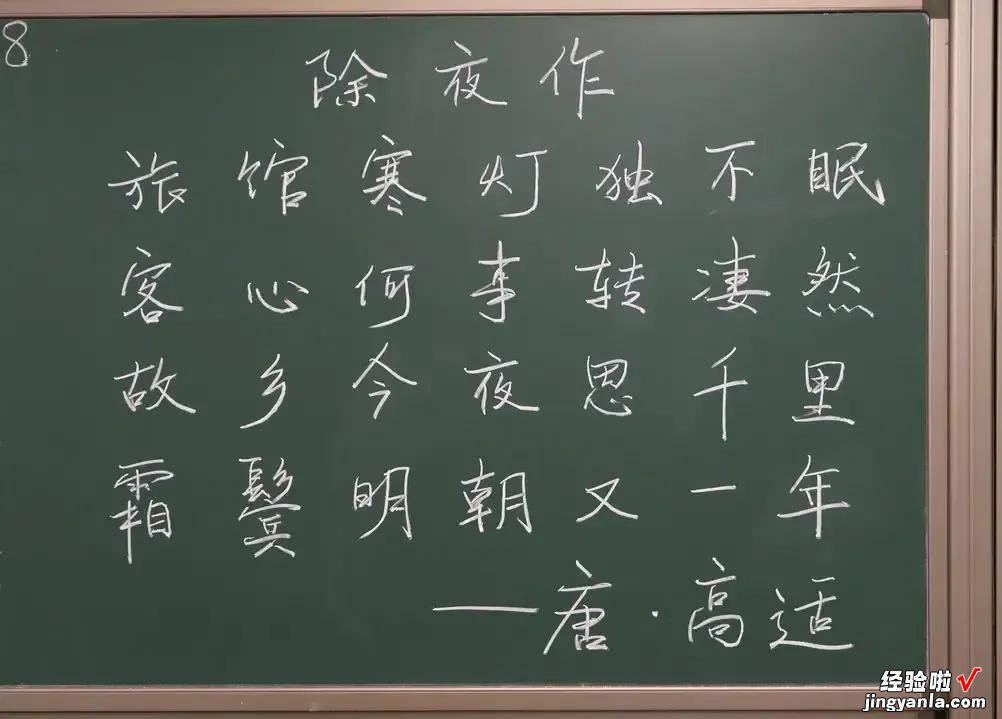 8
除夜作
旅馆寒灯独不眠
客心何事转凄然
故乡今夜思千里
霜鬓明朝又一年
——唐·高适
经验啦√
jingyanla.com